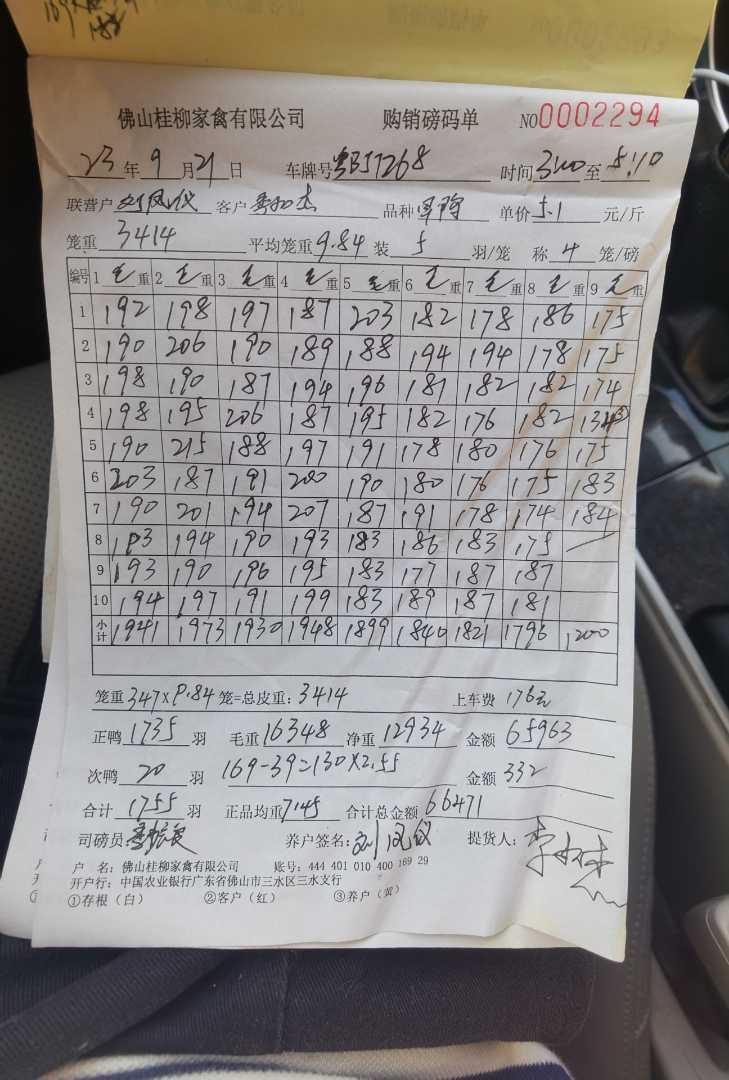 佛山桂柳家禽有限公司 购销磅码单 NO0002294
23年9月21日 车牌号粤BJ7268 时间3:00至5:10
联营户刘凤仪 客户 品种 单价5.1元/斤
笼重3414 平均笼重9.84装5羽/笼 称4笼/磅
编号 1毛重 2毛重 3毛重 4毛重 5毛重 6毛重 7毛重 8毛重 9毛重
1 192 198 197 187 203 182 178 186 175
2 190 206 190 189 188 194 194 178 175
3 198 190 187 194 196 181 182 182 174
4 198 195 206 187 195 182 176 182 134
5 190 215 188 197 191 178 180 176 175
6 203 187 191 200 190 180 176 175 183
7 190 201 194 207 187 191 178 174 184
8 193 194 190 193 183 186 183 175
9 193 190 196 195 183 177 187 187
10 194 197 191 199 183 189 187 181
小计 1941 1973 1930 1948 1899 1840 1821 1796 1200
笼重347×9.84笼=总皮重:3414 上车费 176元
正鸭1735羽 毛重16348 净重12934 金额65963
次鸭20羽 169-39=130×2.55 金额332
合计1755羽 正品均重7.45 合计总金额66471
司磅员 养户签名:刘凤仪 提货人:
户 名:佛山桂柳家禽有限公司 账号:444 401 010 400 169 29
开户行:中国农业银行广东省佛山市三水区三水支行
①存根(白) ②客户(红) ③养户(黄)